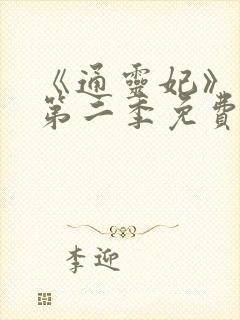 《通靈妃》
第二季免費
李迎